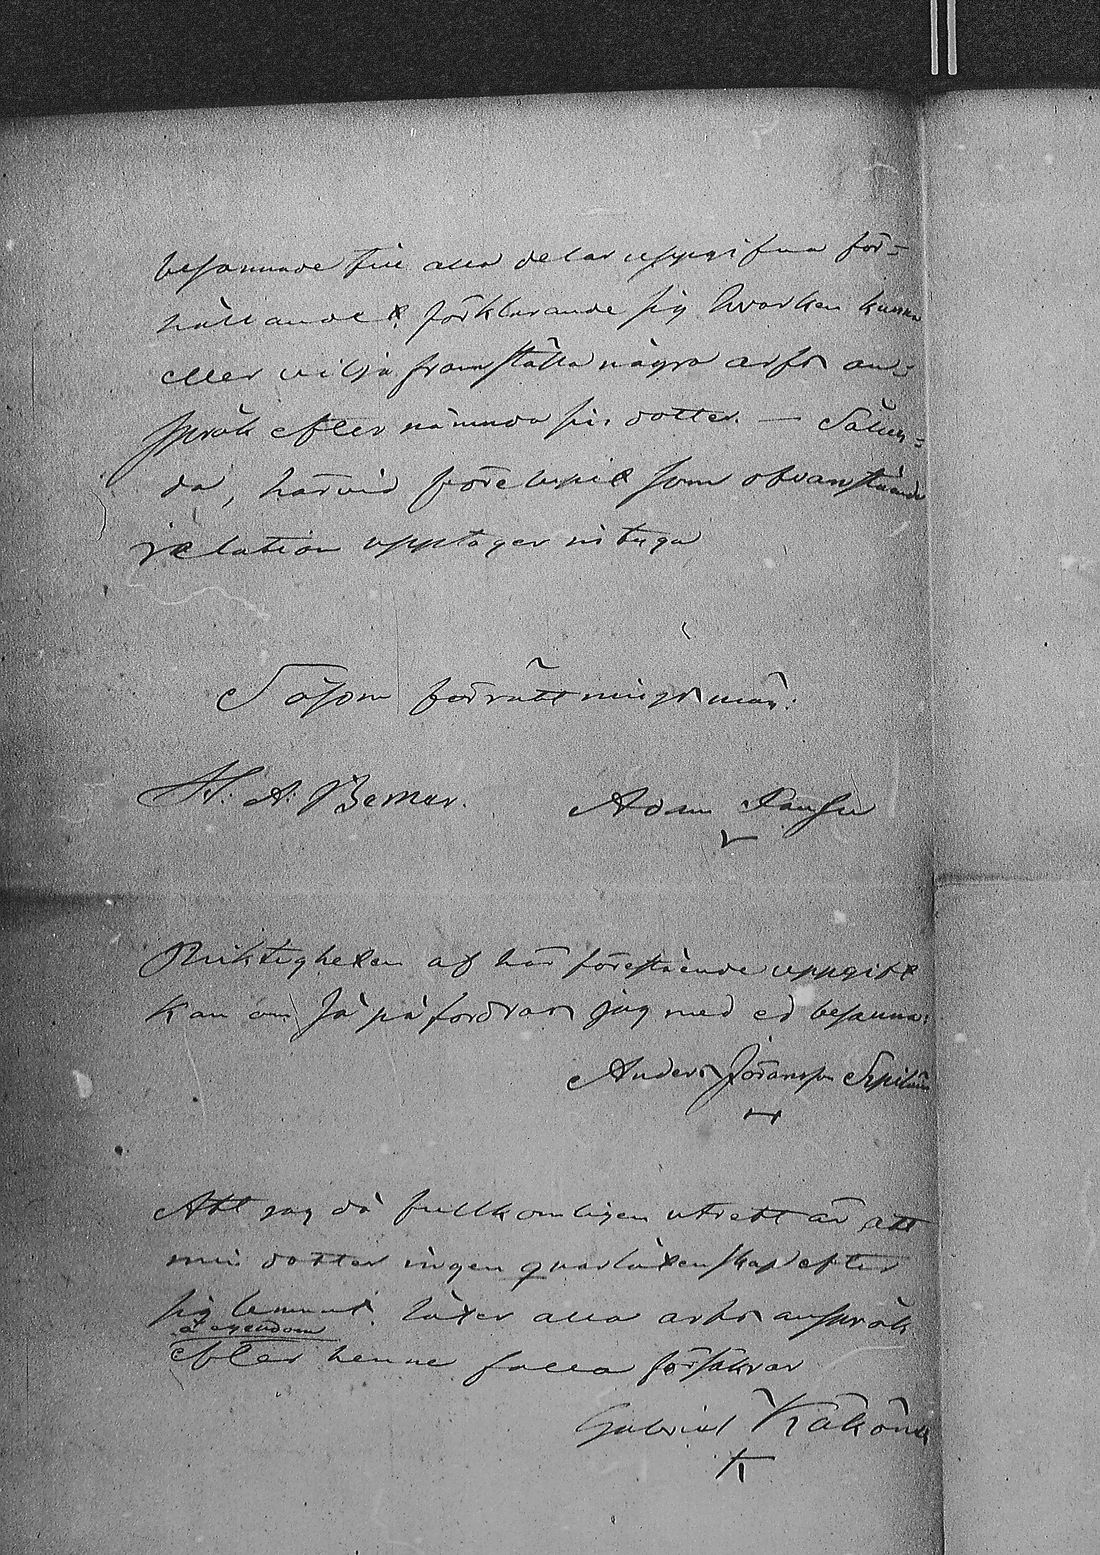 besannade till alla delar uppgifna för-
hållandet, förklarande sig hvarken kunna
eller vilja framställa några arfs an-
språk efter nämnda sin dotter. — Sålun-
da, härvid förelupit som ofvanstående
relation upptager intyga
Såsom förrättningsmän:
H. A. Berner. Adam
Riktigheten af här förestående uppgift
kan om så påfordras jag med ed besanna:
Anders Göransson
Att jag då fullkomligen utredt är att
min dotter ingen qvarlåtenskap efter
sig lemnat låter alla arfs anspråk
å egendom
efter henne falla försäkrar
Gabriel